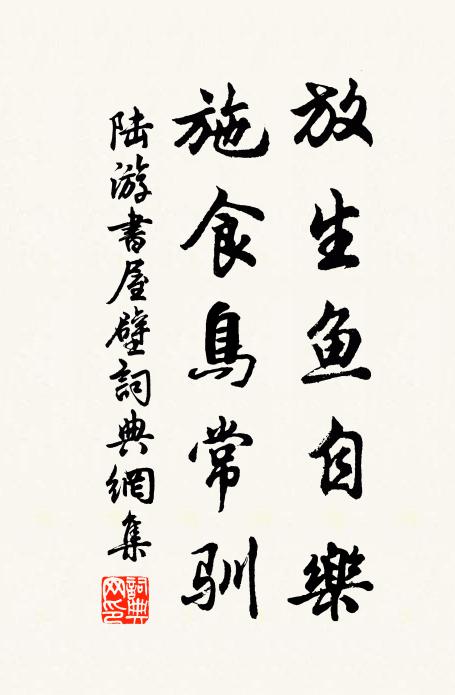 放生鱼自樂
施食鳥常馴
陆游書屋壁詞典網集
詞典网印